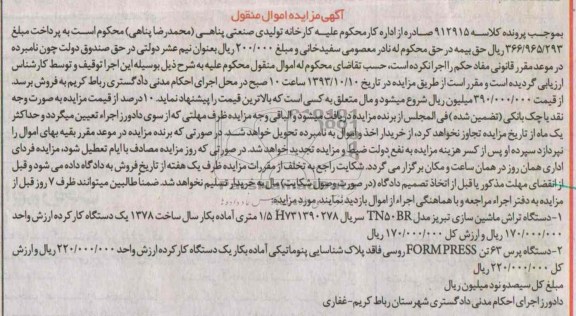 آگهی مزایده اموال منقول
بموجب پرونده کلاسه ۹۱۲۹۱۵ صادره از اداره کار محکوم علیه کارخانه تولیدی صنعتی پناهی (محمدرضا پناهی) محکوم است به پرداخت مبلغ
۳۶۶/۹۶۵/۲۹۳ ریال حق بیمه در حق محکوم له نادر معصومی سفیدخانی و مبلغ ۲۰۰/۰۰۰ ریال بعنوان نیم عشر دولتی در حق صندوق دولت چون نامبرده
در موعد مقرر قانونی مفاد حکم را اجرا نکرده است، حسب تقاضای محکوم له اموال منقول محکوم علیه به شرح ذیل بوسیله این اجرا توقیف و توسط کارشناس
ارزیابی گردیده است و مقرر است از طریق مزایده در تاریخ ۱۳۹۳/۱۰/۱۰ ساعت ۱۰ صبح در محل اجرای احکام مدنی دادگستری رباط کریم به فروش برسد.
از قیمت ۳۹۰/۰۰۰/۰۰۰ میلیون ریال شروع میشود و مال متعلق به کسی است که بالاترین قیمت را پیشنهاد نماید. ۱۰ درصد از قیمت مزایده به صورت وجه
نقد یا چک بانکی (تضمین شده) فی المجلس از برنده مزایده دریافت میشود و الباقی وجه مزایده ظرف مهلتی که از سوی دادورز اجراء تعیین میگردد و حداکثر
یک ماه از تاریخ مزایده تجاوز نخواهد کرد، از خریدار اخذ و اموال به نامبرده تحویل خواهد شد. در صورتی که برنده مزایده در موعد مقرر بقیه بهای اموال را
نپردازد سپرده او پس از کسر هزینه مزایده به نفع دولت ضبط و مزایده تجدید خواهد شد. در صورتی که روز مزایده مصادف با ایام تعطیل شود، مزایده فردای
اداری همان روز در همان ساعت و مکان برگزار می گردد. شکایت راجع به تخلف از مقررات مزایده ظرف یک هفته از تاریخ فروش به دادگاه داده می شود و قبل
از انقضای مهلت مذکور یا قبل از اتخاذ تصمیم دادگاه (در صورت وصول شکایت) مال به خریدار تسلیم نخواهد شد. ضمنا طالبین میتوانند ظرف ۷ روز قبل از
مزایده به دفتر اجراء مراجعه و با هماهنگی اجراء از اموال بازدید نمایند. مورد مزایده:
۱-دستگاه تراش ماشین سازی تبریز مدل TN۵۰BR سریال H۷۳۱۳۹۰۲۷۸ ۱/۵ متری آماده بکار سال ساخت ۱۳۷۸ یک دستگاه کار کرده ارزش واحد
۱۷۰/۰۰۰/۰۰۰ ریال و ارزش کل ۱۷۰/۰۰۰/۰۰۰ ریال
۲-دستگاه پرس ۶۳ تن FORMPRESS روسی فاقد پلاک شناسایی پنوماتیکی آماده بکار یک دستگاه کار کرده ارزش واحد ۲۲۰/۰۰۰/۰۰۰ ریال و ارزش
کل ۲۲۰/۰۰۰/۰۰۰ ریال
مبلغ کل سیصد و نود میلیون ریال
دادورز اجرای احکام مدنی دادگستری شهرستان رباط کریم-غفاری